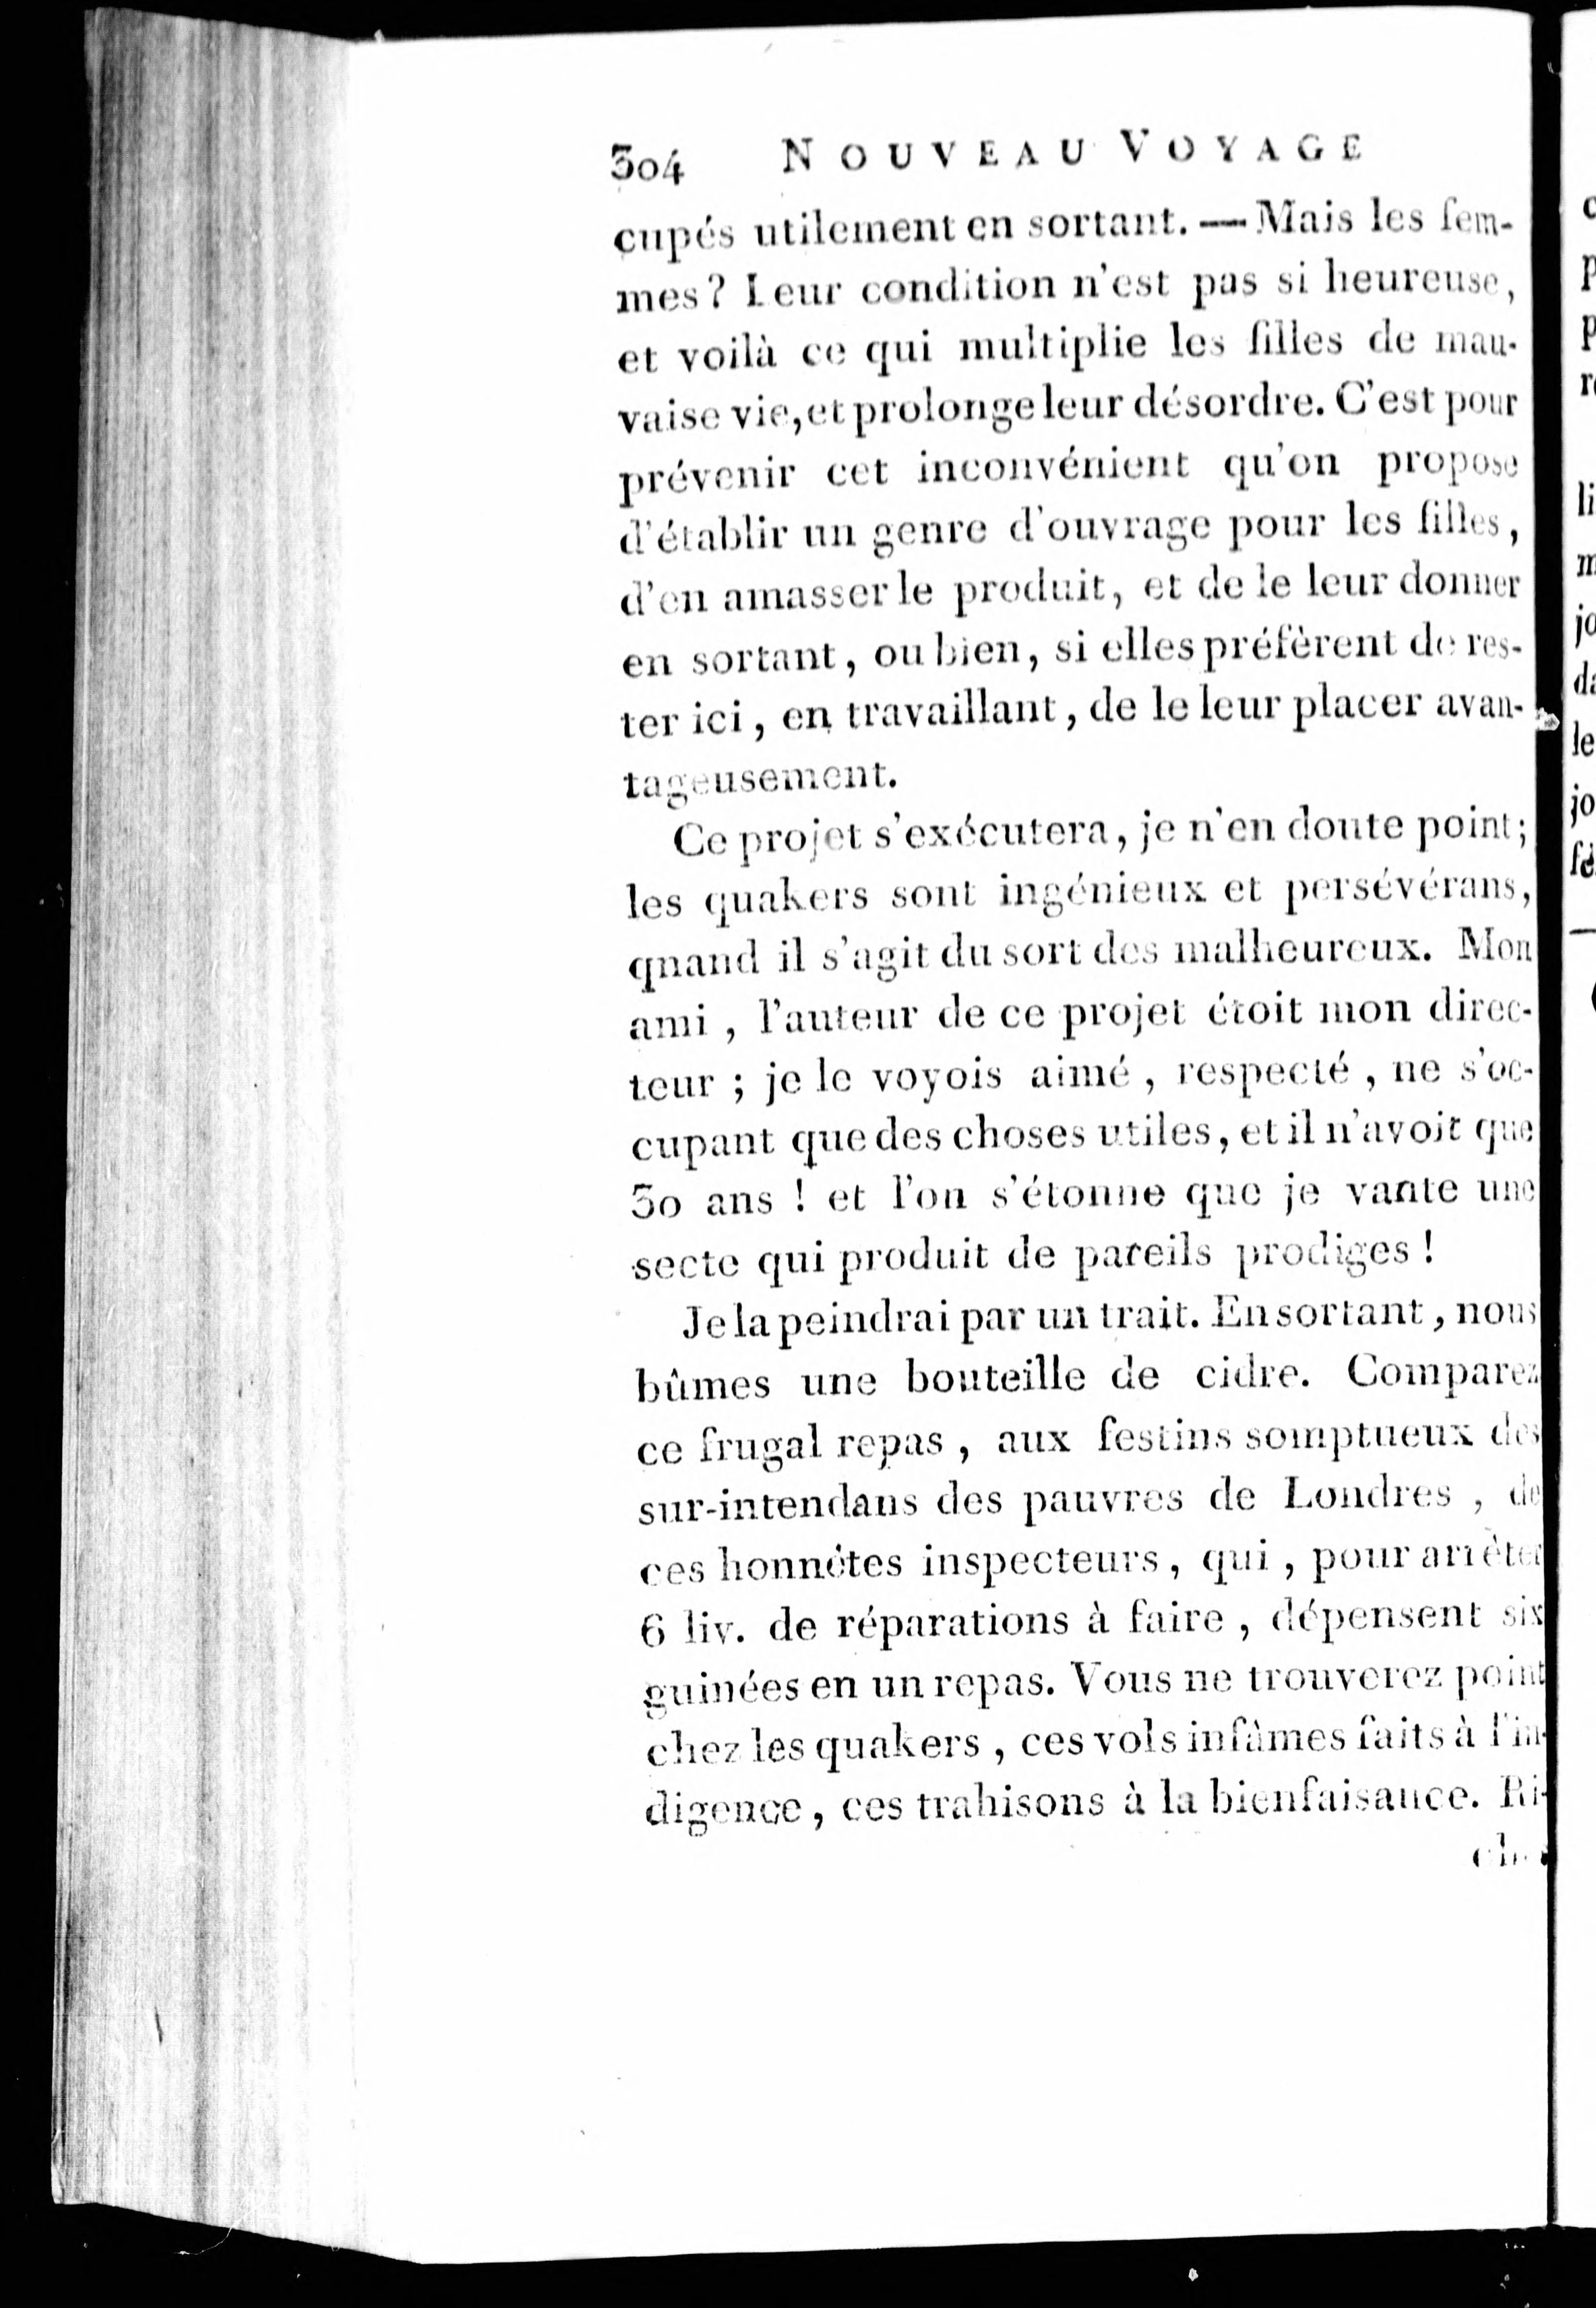 304 NOUVEAU VOYAGE
cupés utilement en sortant. — Mais les fem-
mes? Leur condition n'est pas si heureuse,
et voilà ce qui multiplie les filles de mau-
vaise vie, et prolonge leur désordre. C'est pour
prévenir cet inconvénient qu'on propose
d'établir un genre d'ouvrage pour les filles,
d'en amasser le produit, et de le leur donner
en sortant, ou bien, si elles préfèrent de res-
ter ici, en travaillant, de le leur placer avan-
tageusement.
Ce projet s'exécutera, je n'en doute point;
les quakers sont ingénieux et persévérans,
qnand il s'agit du sort des malheureux. Mon
ami, l'auteur de ce projet étoit mon direc-
teur; je le voyois aimé, respecté, ne s'oc-
cupant que des choses utiles, et il n'avoit que
30 ans ! et l'on s'étonne que je vante une
secte qui produit de pareils prodiges !
Je la peindrai par un trait. En sortant, nous
bûmes une bouteille de cidre. Comparez
ce frugal repas, aux festins somptueux des
sur-intendans des pauvres de Londres, de
ces honnêtes inspecteurs, qui, pour arrêter
6 liv. de réparations à faire, dépensent six
guinées en un repas. Vous ne trouverez point
chez les quakers, ces vols infâmes faits à l'in-
digence, ces trahisons à la bienfaisance. Ri-